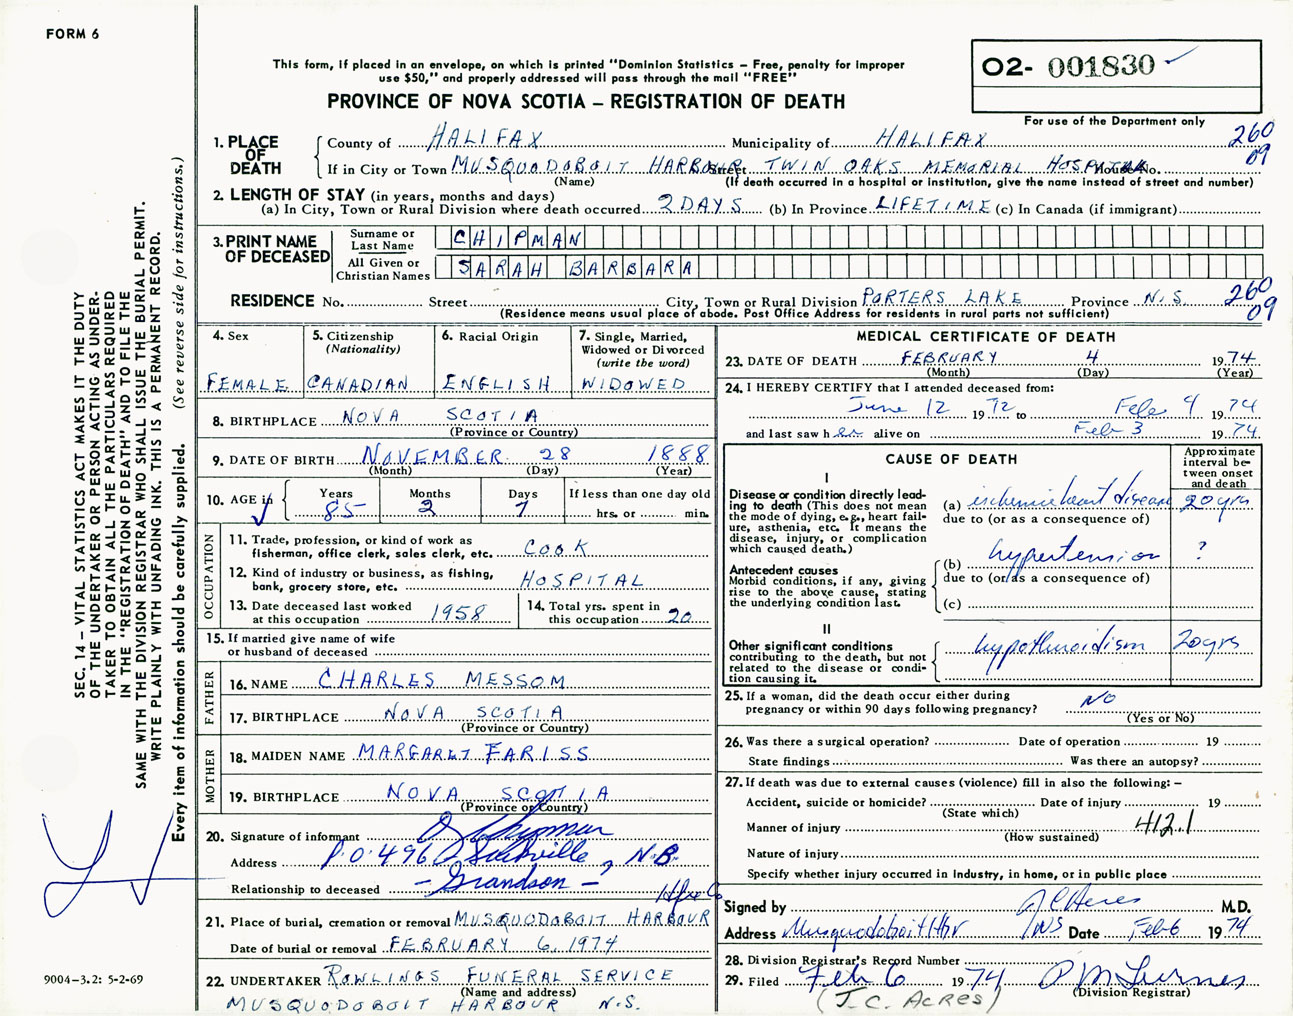 FORM 6
This form, if placed in an envelope, on which is printed "Dominion Statistics – Free, penalty for improper
use $50," and properly addressed will pass through the mail "FREE"
PROVINCE OF NOVA SCOTIA – REGISTRATION OF DEATH
O2- 001830
For use of the Department only
1. PLACE OF DEATH County of HALIFAX Municipality of HALIFAX 260
If in City or Town MUSQUODOBOIT HARBOUR Street TWIN OAKS MEMORIAL HOSPITAL House No. 09
(Name) (If death occurred in a hospital or institution, give the name instead of street and number)
2. LENGTH OF STAY (in years, months and days)
(a) In City, Town or Rural Division where death occurred 2 DAYS (b) In Province LIFETIME (c) In Canada (if immigrant)
3. PRINT NAME OF DECEASED Surname or Last Name CHIPMAN
All Given or Christian Names SARAH BARBARA
RESIDENCE No. Street City, Town or Rural Division PORTERS LAKE Province N.S. 260
(Residence means usual place of abode. Post Office Address for residents in rural parts not sufficient) 09
4. Sex FEMALE
5. Citizenship (Nationality) CANADIAN
6. Racial Origin ENGLISH
7. Single, Married, Widowed or Divorced (write the word) WIDOWED
8. BIRTHPLACE NOVA SCOTIA
(Province or Country)
9. DATE OF BIRTH NOVEMBER 28 1888
(Month) (Day) (Year)
10. AGE in Years 85 Months 2 Days 7 If less than one day old hrs. or min.
OCCUPATION
11. Trade, profession, or kind of work as
fisherman, office clerk, sales clerk, etc. COOK
12. Kind of industry or business, as fishing,
bank, grocery store, etc. HOSPITAL
13. Date deceased last worked
at this occupation 1958
14. Total yrs. spent in
this occupation 20
15. If married give name of wife
or husband of deceased
FATHER
16. NAME CHARLES MESSOM
17. BIRTHPLACE NOVA SCOTIA
(Province or Country)
MOTHER
18. MAIDEN NAME MARGARET FARISS
19. BIRTHPLACE NOVA SCOTIA
(Province or Country)
20. Signature of informant Chipman
Address P.O. 496 Sackville, N.B.
Relationship to deceased – Grandson –
Hfx Co
21. Place of burial, cremation or removal MUSQUODOBOIT HARBOUR
Date of burial or removal FEBRUARY 6, 1974
22. UNDERTAKER ROWLINGS FUNERAL SERVICE
(Name and address)
MUSQUODOBOIT HARBOUR N.S.
MEDICAL CERTIFICATE OF DEATH
23. DATE OF DEATH FEBRUARY 4 1974
(Month) (Day) (Year)
24. I HEREBY CERTIFY that I attended deceased from:
June 12 1972 to Feb 4 1974
and last saw her alive on Feb 3 1974
CAUSE OF DEATH
Approximate
interval be-
tween onset
and death
I
Disease or condition directly lead-
ing to death (This does not mean
the mode of dying, e.g., heart fail-
ure, asthenia, etc. It means the
disease, injury, or complication
which caused death.)
(a) ischemic heart disease 20 yrs
due to (or as a consequence of)
Antecedent causes
Morbid conditions, if any, giving
rise to the above cause, stating
the underlying condition last.
(b) hypertension ?
due to (or as a consequence of)
(c)
II
Other significant conditions
contributing to the death, but not
related to the disease or condi-
tion causing it.
hypothyroidism 20 yrs
25. If a woman, did the death occur either during
pregnancy or within 90 days following pregnancy? NO
(Yes or No)
26. Was there a surgical operation? Date of operation 19
State findings Was there an autopsy?
27. If death was due to external causes (violence) fill in also the following: –
Accident, suicide or homicide? Date of injury 19
(State which)
Manner of injury 412.1
(How sustained)
Nature of injury
Specify whether injury occurred in industry, in home, or in public place
Signed by J C Acres M.D.
Address Musquodoboit Hbr NS Date Feb 6 1974
28. Division Registrar's Record Number
29. Filed Feb 6 1974
(Division Registrar)
(J. C. ACRES)
SEC. 14 – VITAL STATISTICS ACT MAKES IT THE DUTY
OF THE UNDERTAKER OR PERSON ACTING AS UNDER-
TAKER TO OBTAIN ALL THE PARTICULARS REQUIRED
IN THE "REGISTRATION OF DEATH" AND TO FILE THE
SAME WITH THE DIVISION REGISTRAR WHO SHALL ISSUE THE BURIAL PERMIT.
WRITE PLAINLY WITH UNFADING INK. THIS IS A PERMANENT RECORD.
Every item of information should be carefully supplied. (See reverse side for instructions.)
9004–3.2: 5-2-69